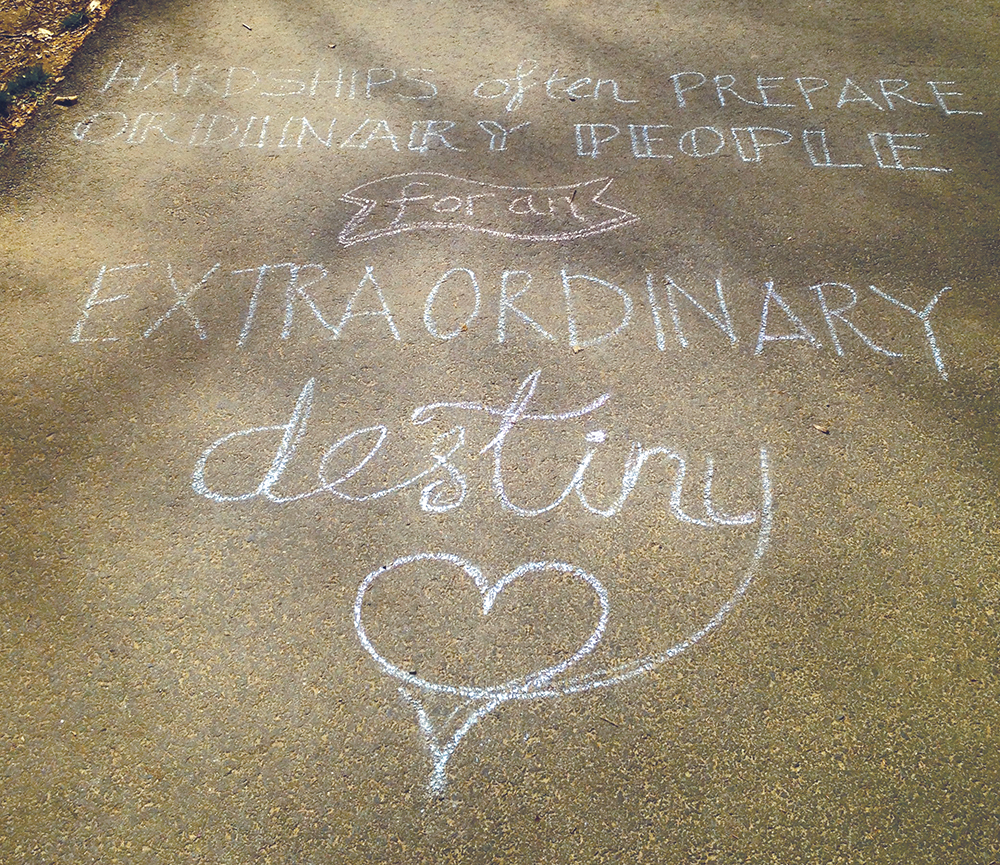 HARDSHIPS often PREPARE
ORDINARY PEOPLE
for an
EXTRAORDINARY
destiny